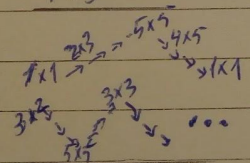 1x1 →→ 2x3 →→ 5x5 →→ 4x5 →→ 1x1
3x2 →→ 5x2 →→ 3x3 →→ ...